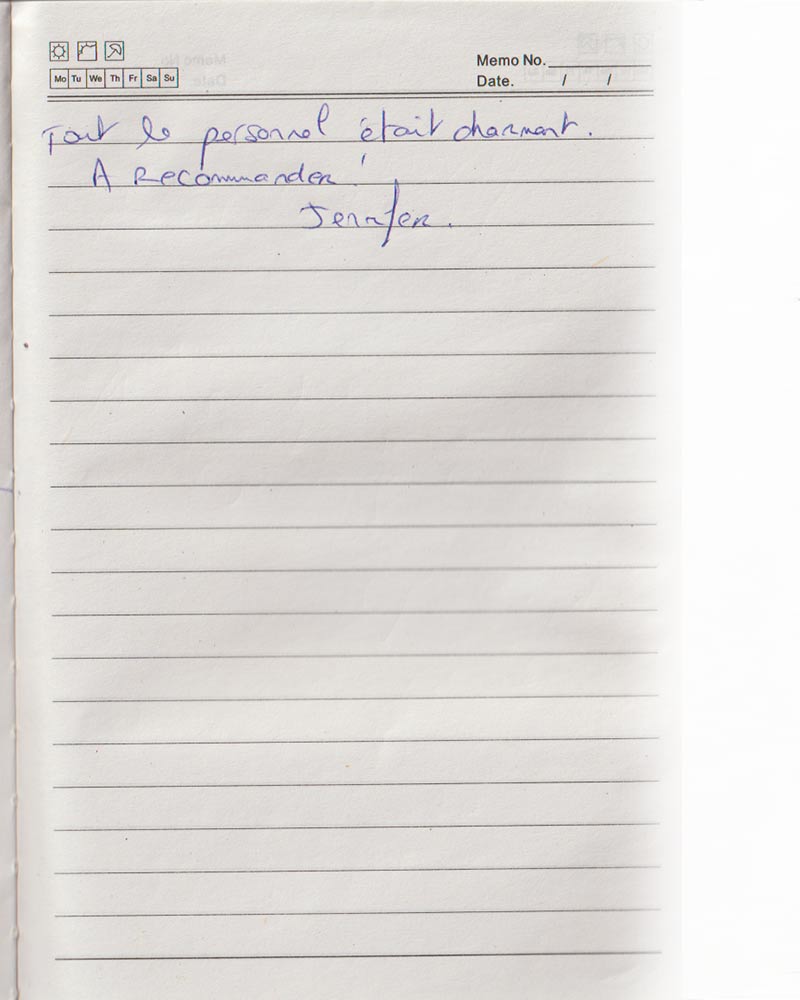 Memo No.
Mo Tu We Th Fr Sa Su
Date. / /
Tout le personnel était charmant.
A Recommander!
Jennifer.